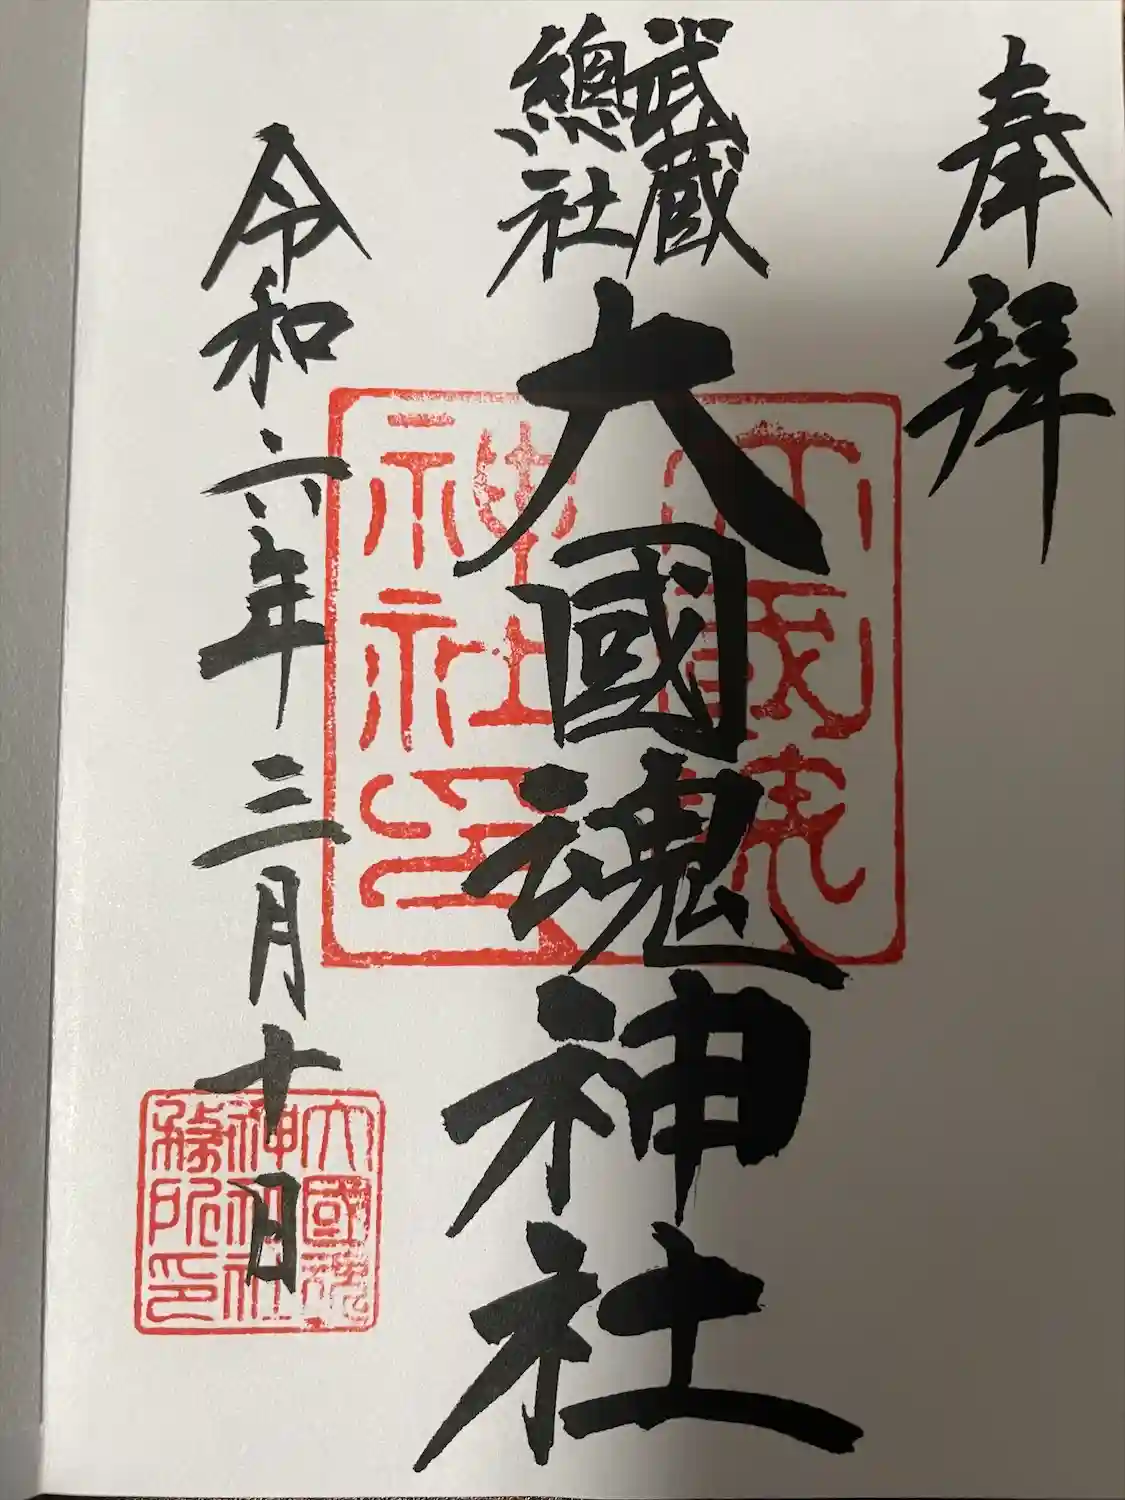 奉拝
武蔵
總社
大國魂神社
令和六年三月十日
大國魂
神社印
大國魂
神社
務所印